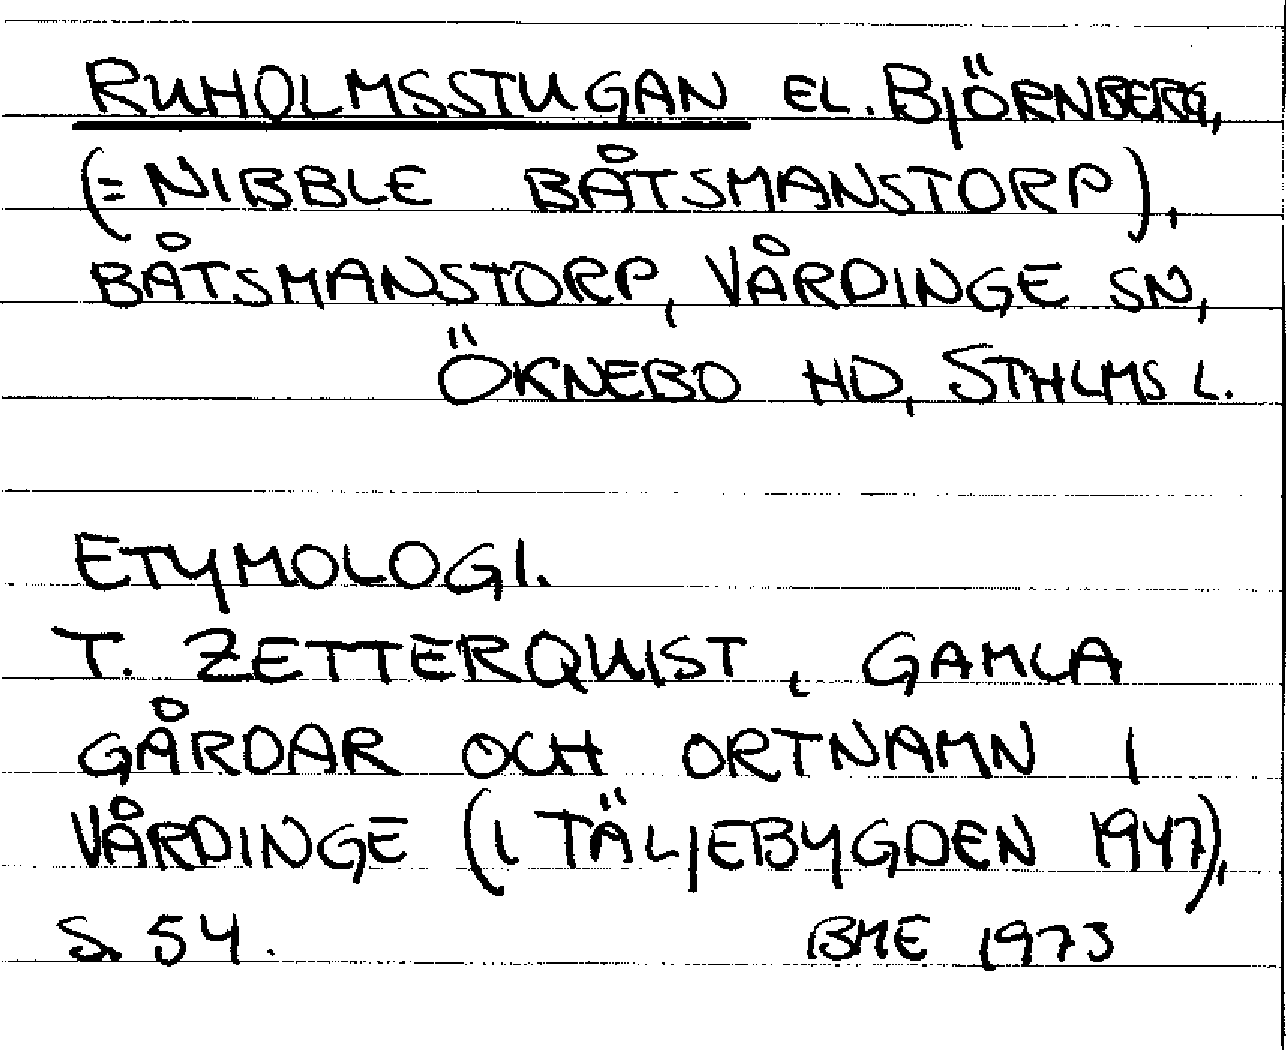 RUHOLMSSTUGAN EL. BJÖRNBERG,
(= NIBBLE BÅTSMANSTORP),
BÅTSMANSTORP, VÅRDINGE SN,
ÖKNEBO HD, STHLMS L.
ETYMOLOGI.
T. ZETTERQUIST, GAMLA
GÅRDAR OCH ORTNAMN I
VÅRDINGE (I TÄLJEBYGDEN 1947),
S. 54. BME 1973